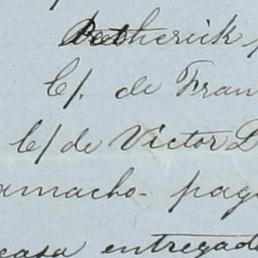 Rotherick
C/. de Fran
C/ de Victor L
amacho. pag
casa entregado